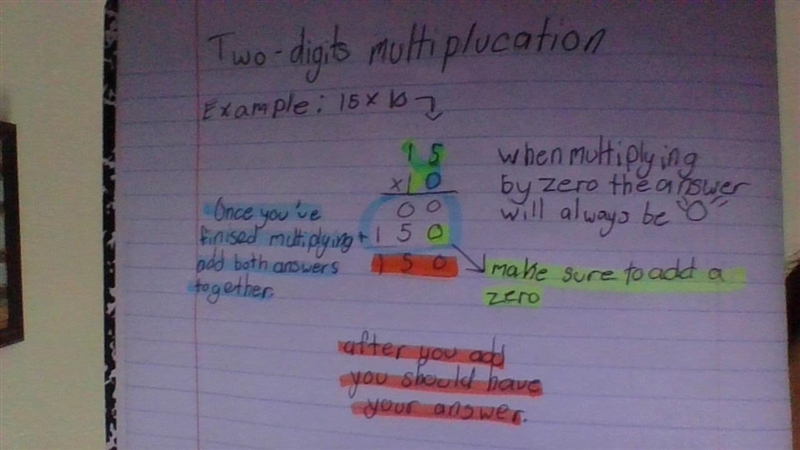 Two-digits multiplucation
Example: 15 x 10
1 5
x 1 0
0 0
+ 1 5 0
1 5 0
when multiplying
by zero the answer
will always be "0"
Once you've
finised multiplying
add both answers
together.
make sure to add a
zero
after you add
you should have
your answer.